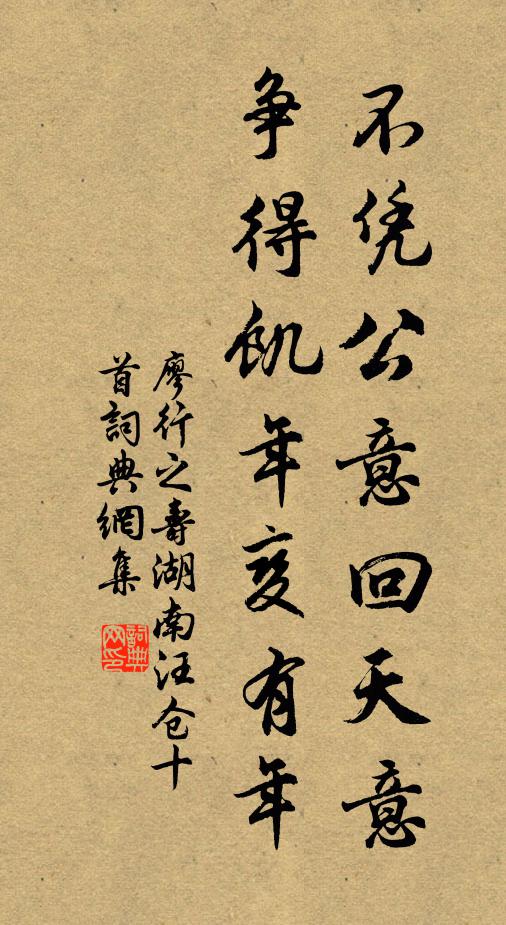 不凭公意回天意
争得飢年变有年
廖行之寿湖南汪仓十
首詞典網集
詞典
网印